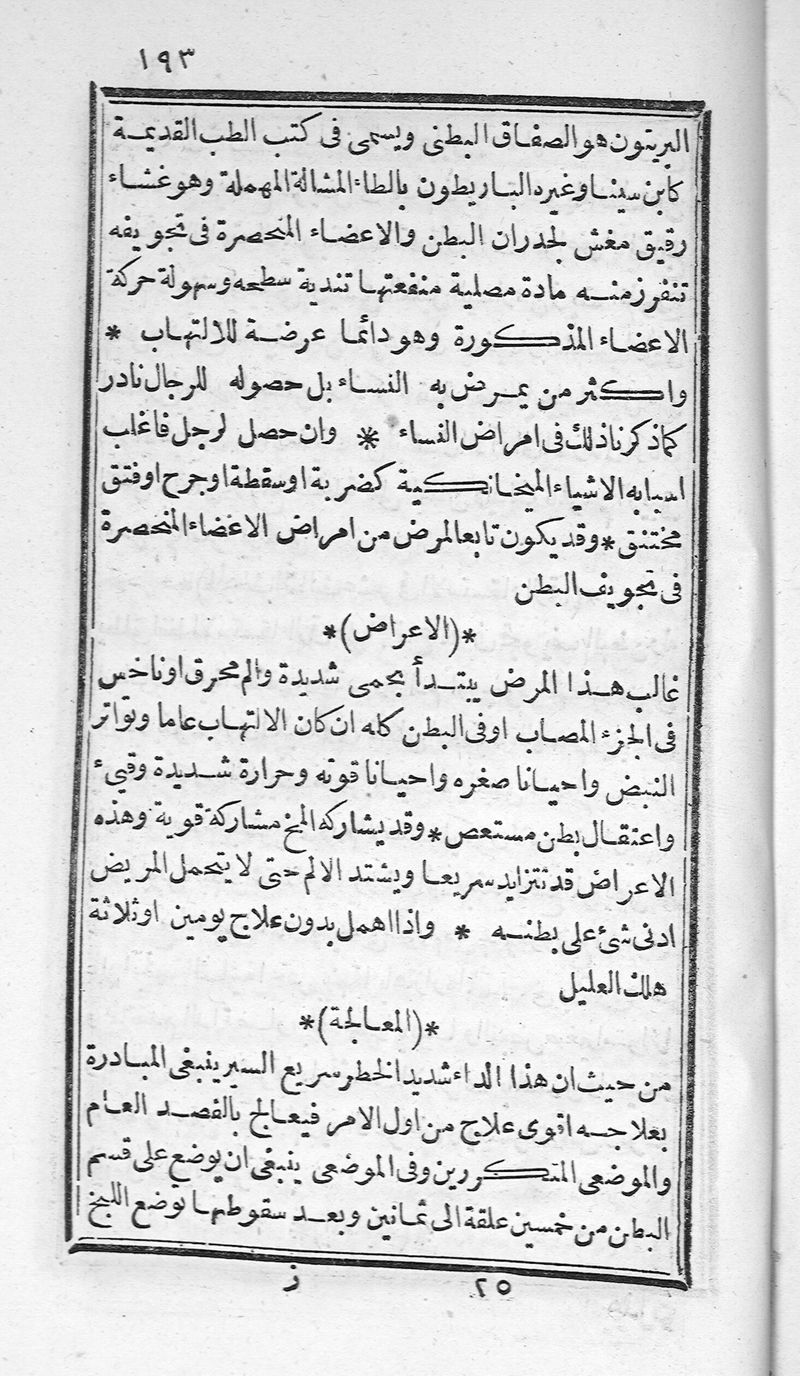 ١٩٣
البريتون هو الصفاق البطنى ويسمى فى كتب الطب القديمة
كابن سينا وغيره الباريطون بالطاء المشالة المهملة وهو غشاء
رقيق مغش لجدران البطن والاعضاء المنحصرة فى تجويفه
تنفرز منه مادة مصلية منفعتها تندية سطحه وسهولة حركة
الاعضاء المذكورة وهو دائما عرضة للالتهاب *
واكثر من يمرض به النساء بل حصوله للرجال نادر
كما ذكرنا ذلك فى امراض النساء * وان حصل لرجل فاغلب
اسبابه الاشياء الميخانكية كضربة او سقطة او جرح او فتق
مختنق * وقد يكون تابعا لمرض من امراض الاعضاء المنحصرة
فى تجويف البطن
*(الاعراض)*
غالب هذا المرض يبتدأ بحمى شديدة والم محرق او ناخس
فى الجزء المصاب او فى البطن كله ان كان الالتهاب عاما وتواتر
النبض واحيانا صغره واحيانا قوته وحرارة شديدة وقيىء
واعتقال بطن مستعص * وقد يشاركه المخ مشاركة قوية وهذه
الاعراض قد تتزايد سريعا ويشتد الالم حتى لا يتحمل المريض
ادنى شئ على بطنه * واذا اهمل بدون علاج يومين او ثلاثة
هلك العليل
*(المعالجة)*
من حيث ان هذا الداء شديد الخطر سريع السير ينبغى المبادرة
بعلاجه اقوى علاج من اول الامر فيعالج بالفصد العام
والموضعى المتكررين وفى الموضعى ينبغى ان يوضع على قسم
البطن من خمسين علقة الى ثمانين وبعد سقوطها توضع اللبخ
٢٥ ز